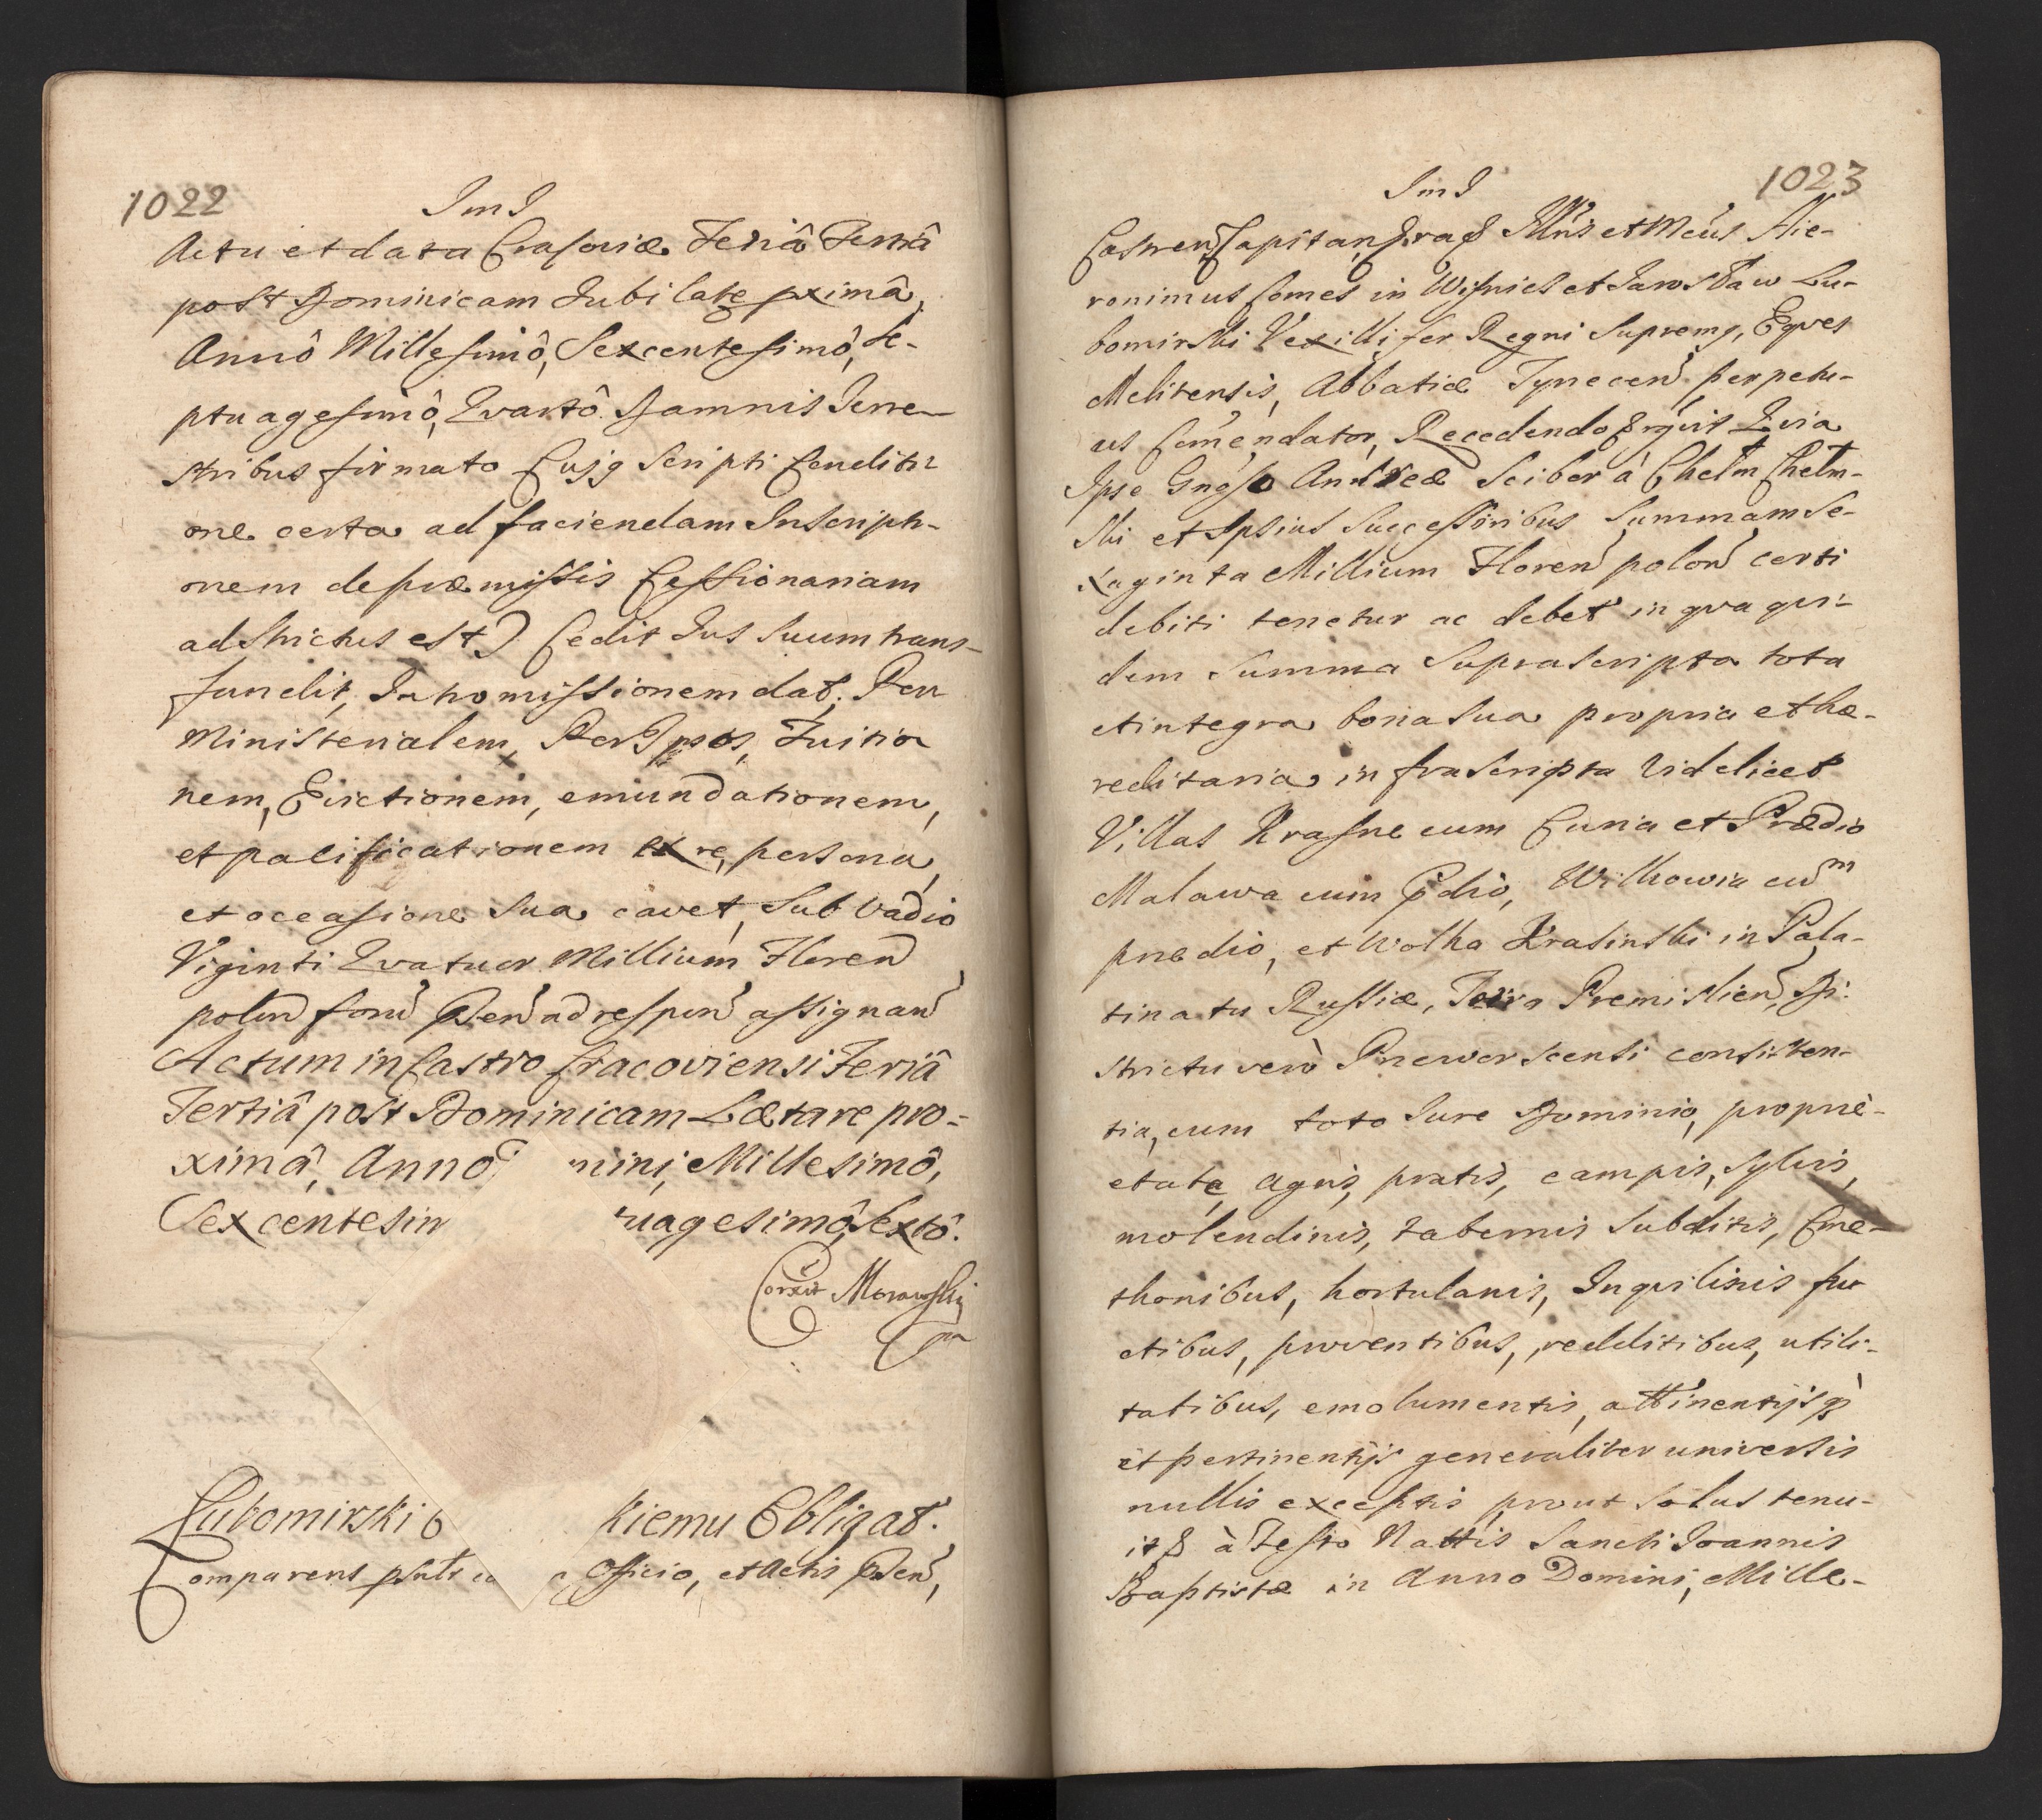 1022
Actu et data Crasoviæ Feriâ Tertiâ
post Dominicam Jubilate pximâ,
Annô Millesimô, Sexcentesimô, Se-
ptuagesimô, Qvartô Damnis Terre-
stribus firmato Cujq Scripti Conditi-
one certa ad faciendam Inscripti-
onem de præmissis Cessionariam
adstrictus est) Cedit Jus Suum trans-
fundit, Intromissionem dat. Per
Ministerialem, Tuitio
nem, Evictionem, emundationem,
et pacificationem ex re, persona,
et occasione sua cavet, Sub Vadio
Viginti Qvatuor Millium Floren
polon foru Psen ad respon assignan
Actum in Castro Cracoviensi Feriâ
Tertiâ post Dominicam Lætare pro-
ximâ, Anno mini, Millesimô,
Sexcentesim uagesimô, Sextô.
Correxit Morawski
mp
Lubomirski C kiemu Obligat.
Comparens psnts co Officio, et Actis Psen,
1023
Castren Capitan Illris et Mcus Hie-
ronimus Comes in Wisnicz et Jarosław Lu-
bomirski Vexillifer Regni Supremg, Eqves
Melitensis, Abbatiæ Tynecen perpetu-
us Comendator, Recedendo Qvia
Ipse Gnoso Andreæ Scibor à Chełm Chełm-
ski et Ipsius Successoribus Summam Se-
xaginta Millium Floren polon certi
debiti tenetur ac debet in qva qvi-
dem Summa Suprascripta tota
et integra bona Sua propria et hæ-
reditaria infrascripta Videlicet
Villas Krasne cum Curia et Prædio
Malawa cum Pdio, Wilkowia cum
prædio, et Wolka Krasinski in Pala-
tinatu Russiæ, Terra Premislien, Di-
strictu verò Przeworscensi consisten-
tia, cum toto Jure Dominio, proprie-
etate agris, pratis, campis, Sylvis,
molendinis, tabernis Subditis, Cme-
thonibus, hortulanis, Inqvilinis fru
ctibus, proventibus, redditibus, utili-
tatibus, emolumentis, attinentijsq
et pertinentijs generaliter universis
nullis exceptis prout Solus tenu-
it à Festo Nattis Sancti Joannis
Baptistæ in Anno Domini, Mille-